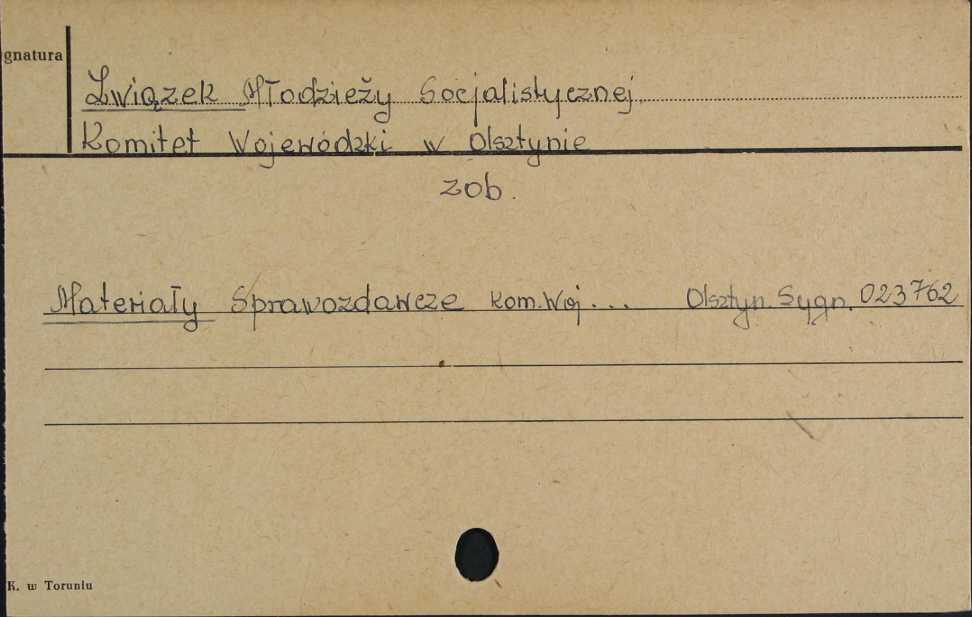 gnatura
Związek Młodzieży Socjalistycznej
Komitet Wojewódzki w Olsztynie
zob.
Materiały Sprawozdawcze Kom. Woj... Olsztyn. Sygn. 023762
K. w Toruniu